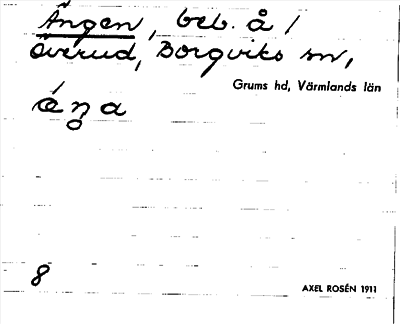 Ängen, beb. å /
Överud, Borgviks sn,
Grums hd, Värmlands län
ǽŋ̥a
8
AXEL ROSÉN 1911